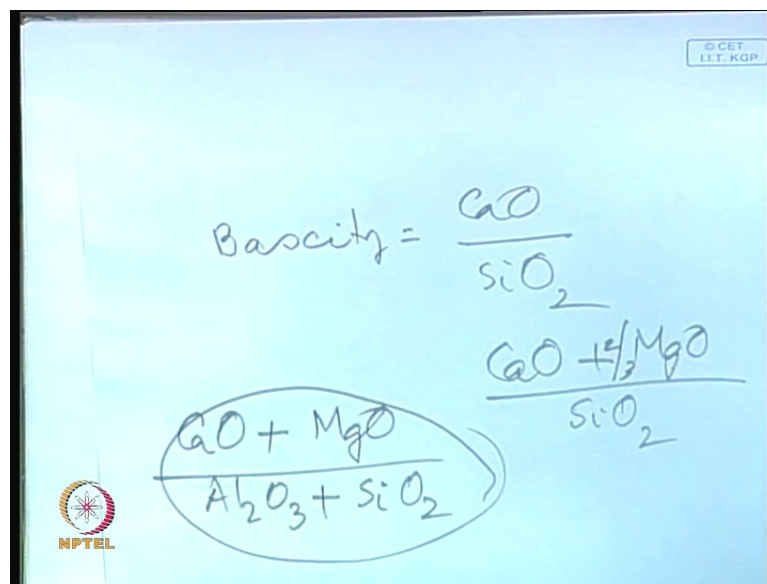 © CET
I.I.T. KGP
Bascity = CaO / SiO2
CaO + 2/3 MgO / SiO2
CaO + MgO / Al2O3 + SiO2
NPTEL